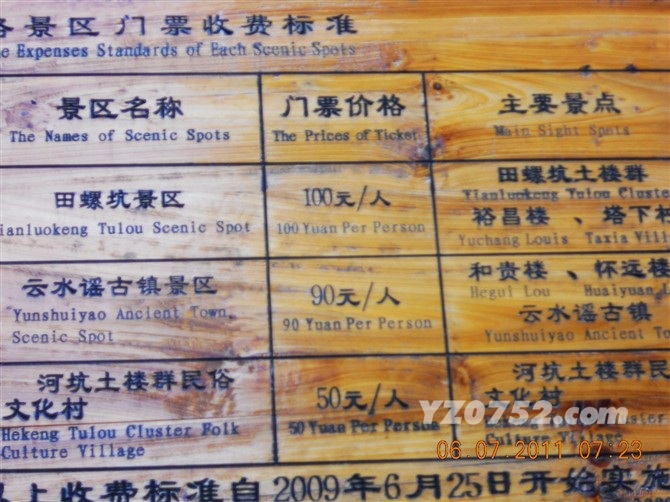 各景区门票收费标准
Expenses Standards of Each Scenic Spots
景区名称
The Names of Scenic Spots
门票价格
The Prices of Ticket
主要景点
Main Sight Spots
田螺坑景区
ianluokeng Tulou Scenic Spot
100元/人
100 Yuan Per Person
田螺坑土楼群
Tianluokeng Tulou Cluster
裕昌楼、塔下村
Yuchang Louis Taxia Vill
云水谣古镇景区
Yunshuiyao Ancient Town
Scenic Spot
90元/人
90 Yuan Per Person
和贵楼、怀远楼
Hegui Lou Huaiyuan L
云水谣古镇
Yunshuiyao Ancient To
河坑土楼群民俗
文化村
Hekeng Tulou Cluster Folk
Culture Village
50元/人
50 Yuan Per Person
河坑土楼群民
文化村
Culture Village
以上收费标准自2009年6月25日开始实施
YZ0752.com
06.07.2011 07:23